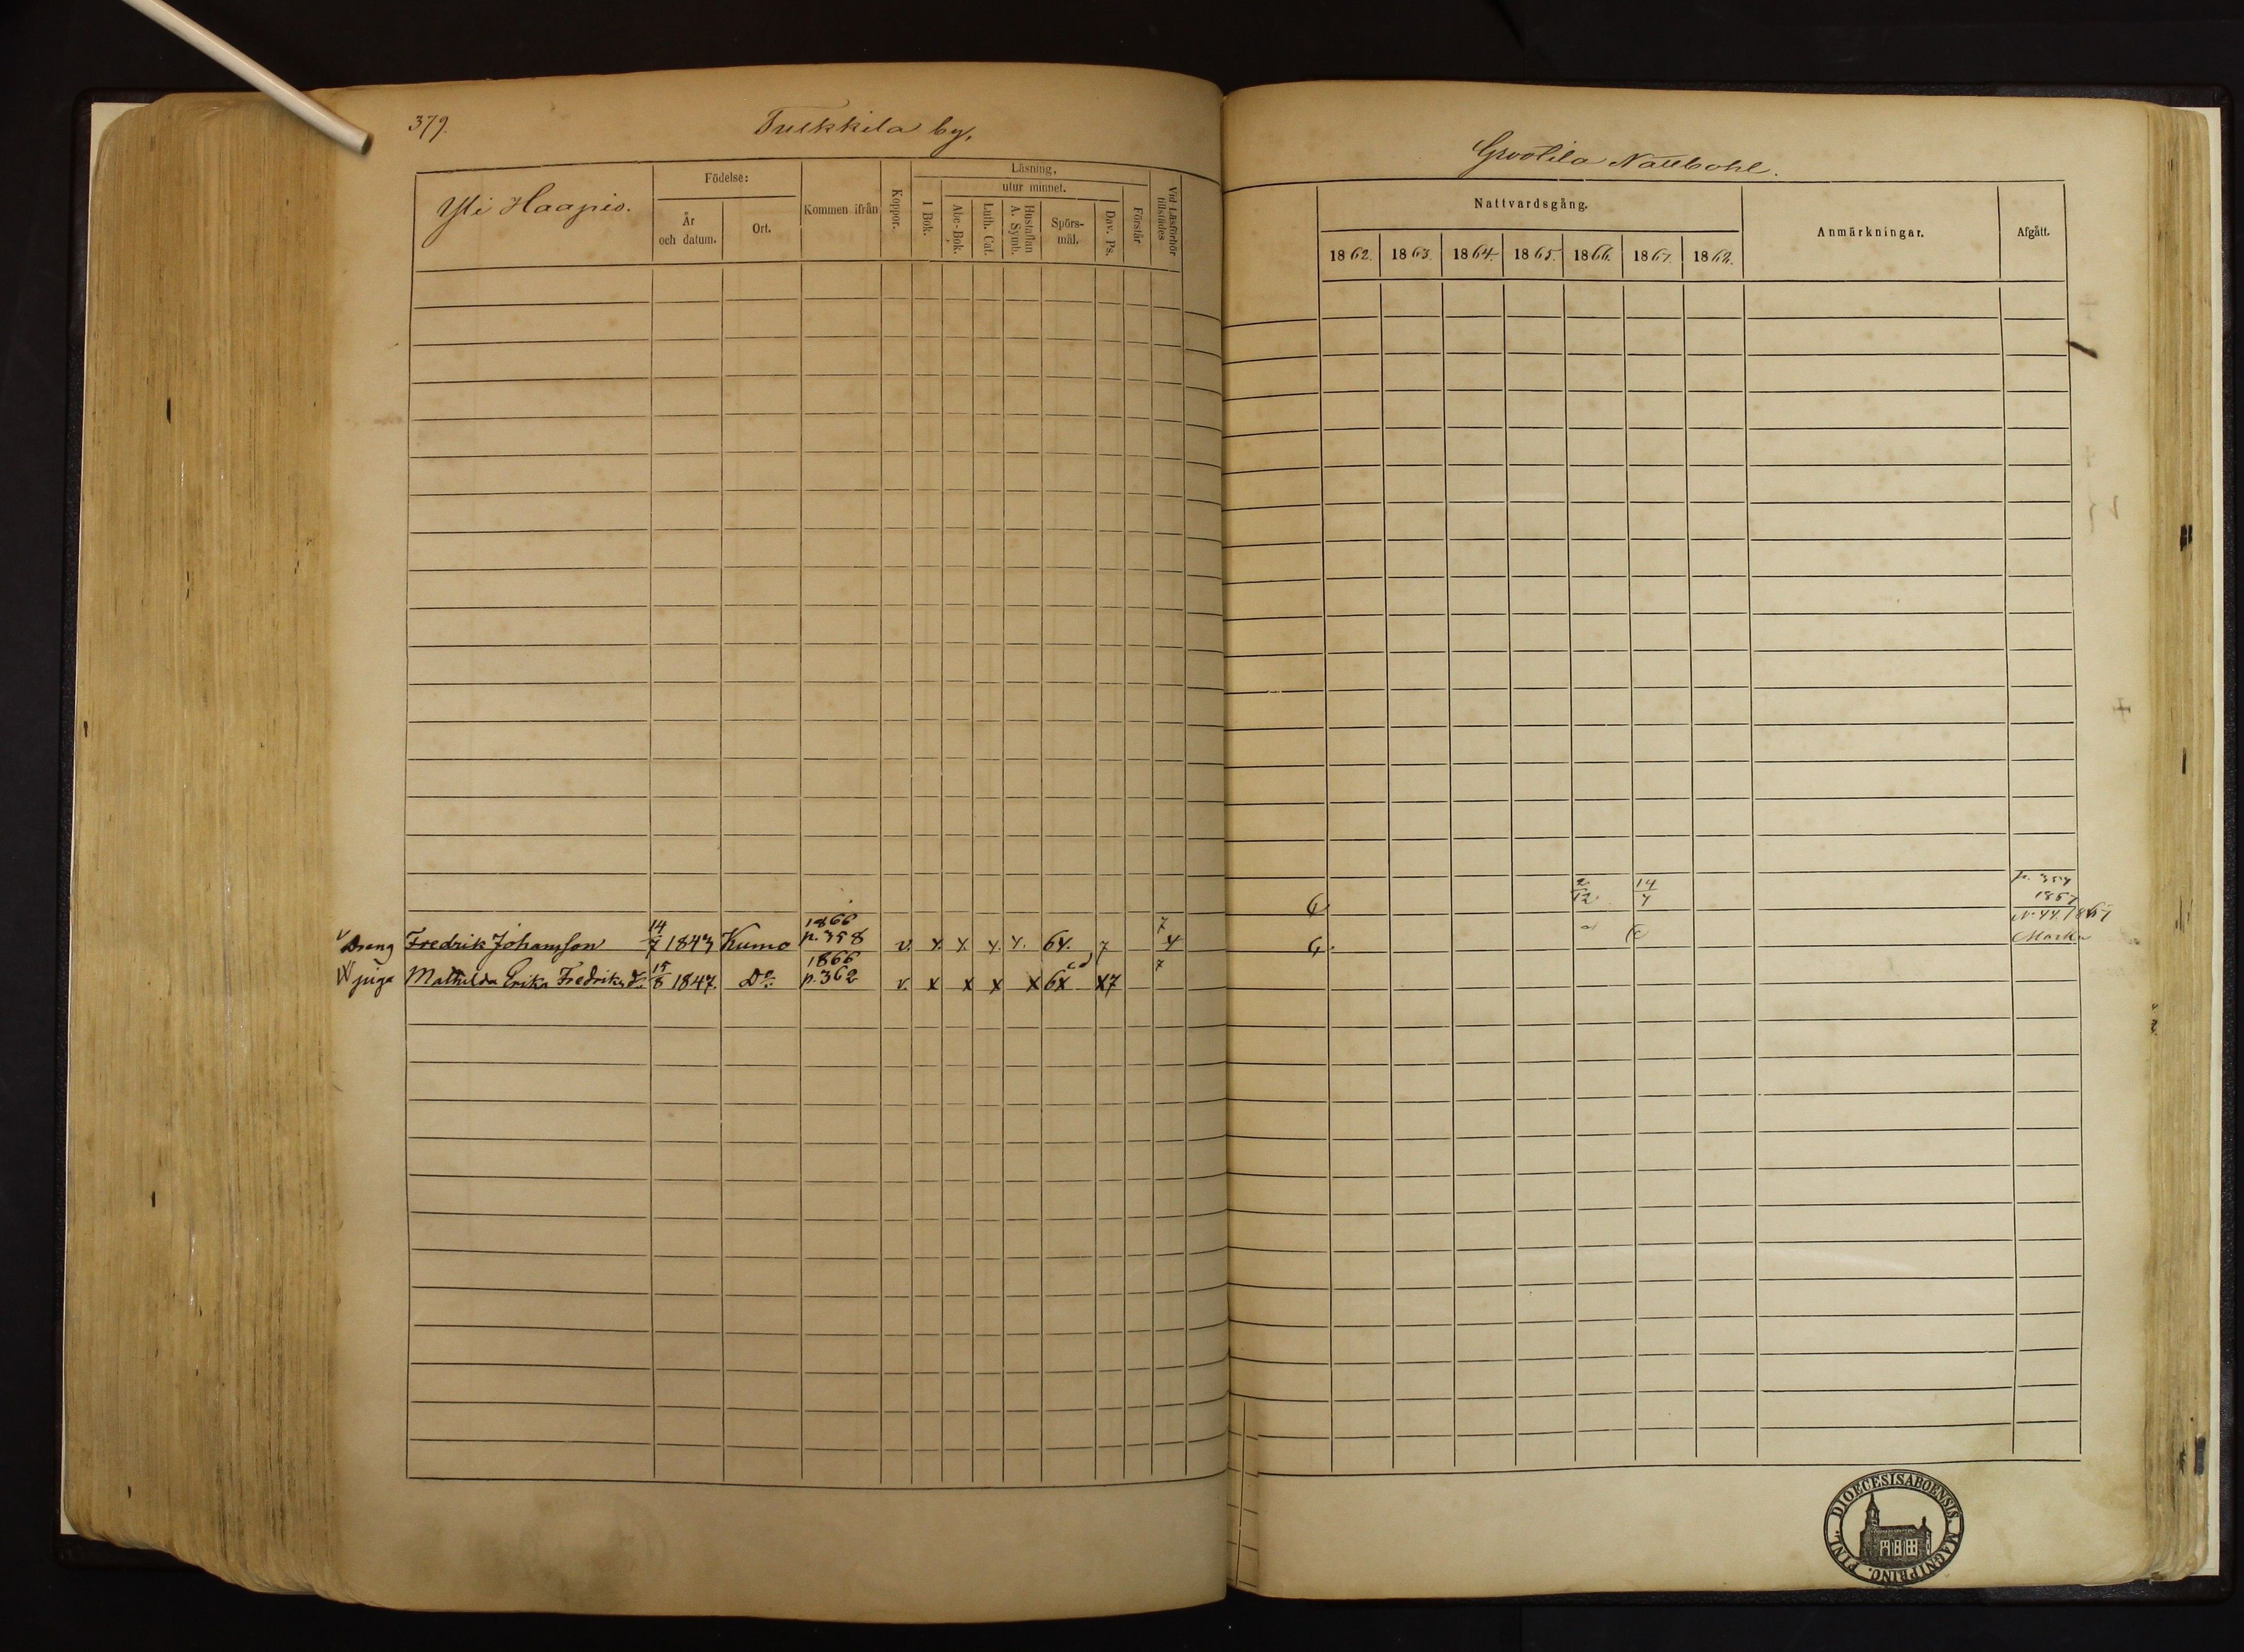 379.
Tulkkila by.
Grootila Rättbohl.
Yli Haapio.
Födelse:
År och datum.
Ort.
Kommen ifrån
Koppor.
Läsning,
I Bok.
utur minnet.
Abc-Bok.
Luth. Cat.
Hustaflan A. Symb.
Spörs-mål.
Dav. Ps.
Förstår
Vid Läsförhör tillstädes
Nattvardsgång.
1862. 1863. 1864. 1865. 1866. 1867. 1868.
Anmärkningar.
Afgått.
v Dreng Fredrik Johansson 14/7 1843 Kumo 1866 p. 358 v. x x x. x. 6x. 7 7 4
2/12 14/7
p. 359 1867
piga Mathilda Erika Fredriksdr. 15/8 1847. Do: 1866 p. 362 v. x x x x 6x x7 7
No 44. 1867
DIOECESIS ABOENSIS. MAGNI PRINC. FINL.